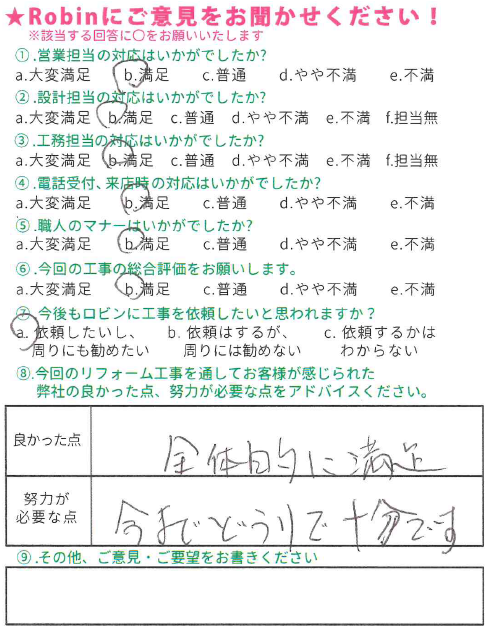 ★Robinにご意見をお聞かせください！
※該当する回答に○をお願いいたします
①.営業担当の対応はいかがでしたか?
a.大変満足 b.満足 c.普通 d.やや不満 e.不満
②.設計担当の対応はいかがでしたか?
a.大変満足 b.満足 c.普通 d.やや不満 e.不満 f.担当無
③.工務担当の対応はいかがでしたか?
a.大変満足 b.満足 c.普通 d.やや不満 e.不満 f.担当無
④.電話受付、来店時の対応はいかがでしたか?
a.大変満足 b.満足 c.普通 d.やや不満 e.不満
⑤.職人のマナーはいかがでしたか?
a.大変満足 b.満足 c.普通 d.やや不満 e.不満
⑥.今回の工事の総合評価をお願いします。
a.大変満足 b.満足 c.普通 d.やや不満 e.不満
⑦.今後もロビンに工事を依頼したいと思われますか？
a. 依頼したいし、 b. 依頼はするが、 c. 依頼するかは
周りにも勧めたい 周りには勧めない わからない
⑧.今回のリフォーム工事を通してお客様が感じられた
弊社の良かった点、努力が必要な点をアドバイスください。
良かった点 全体的に満足
努力が
必要な点 今までどうりで十分です
⑨.その他、ご意見・ご要望をお書きください